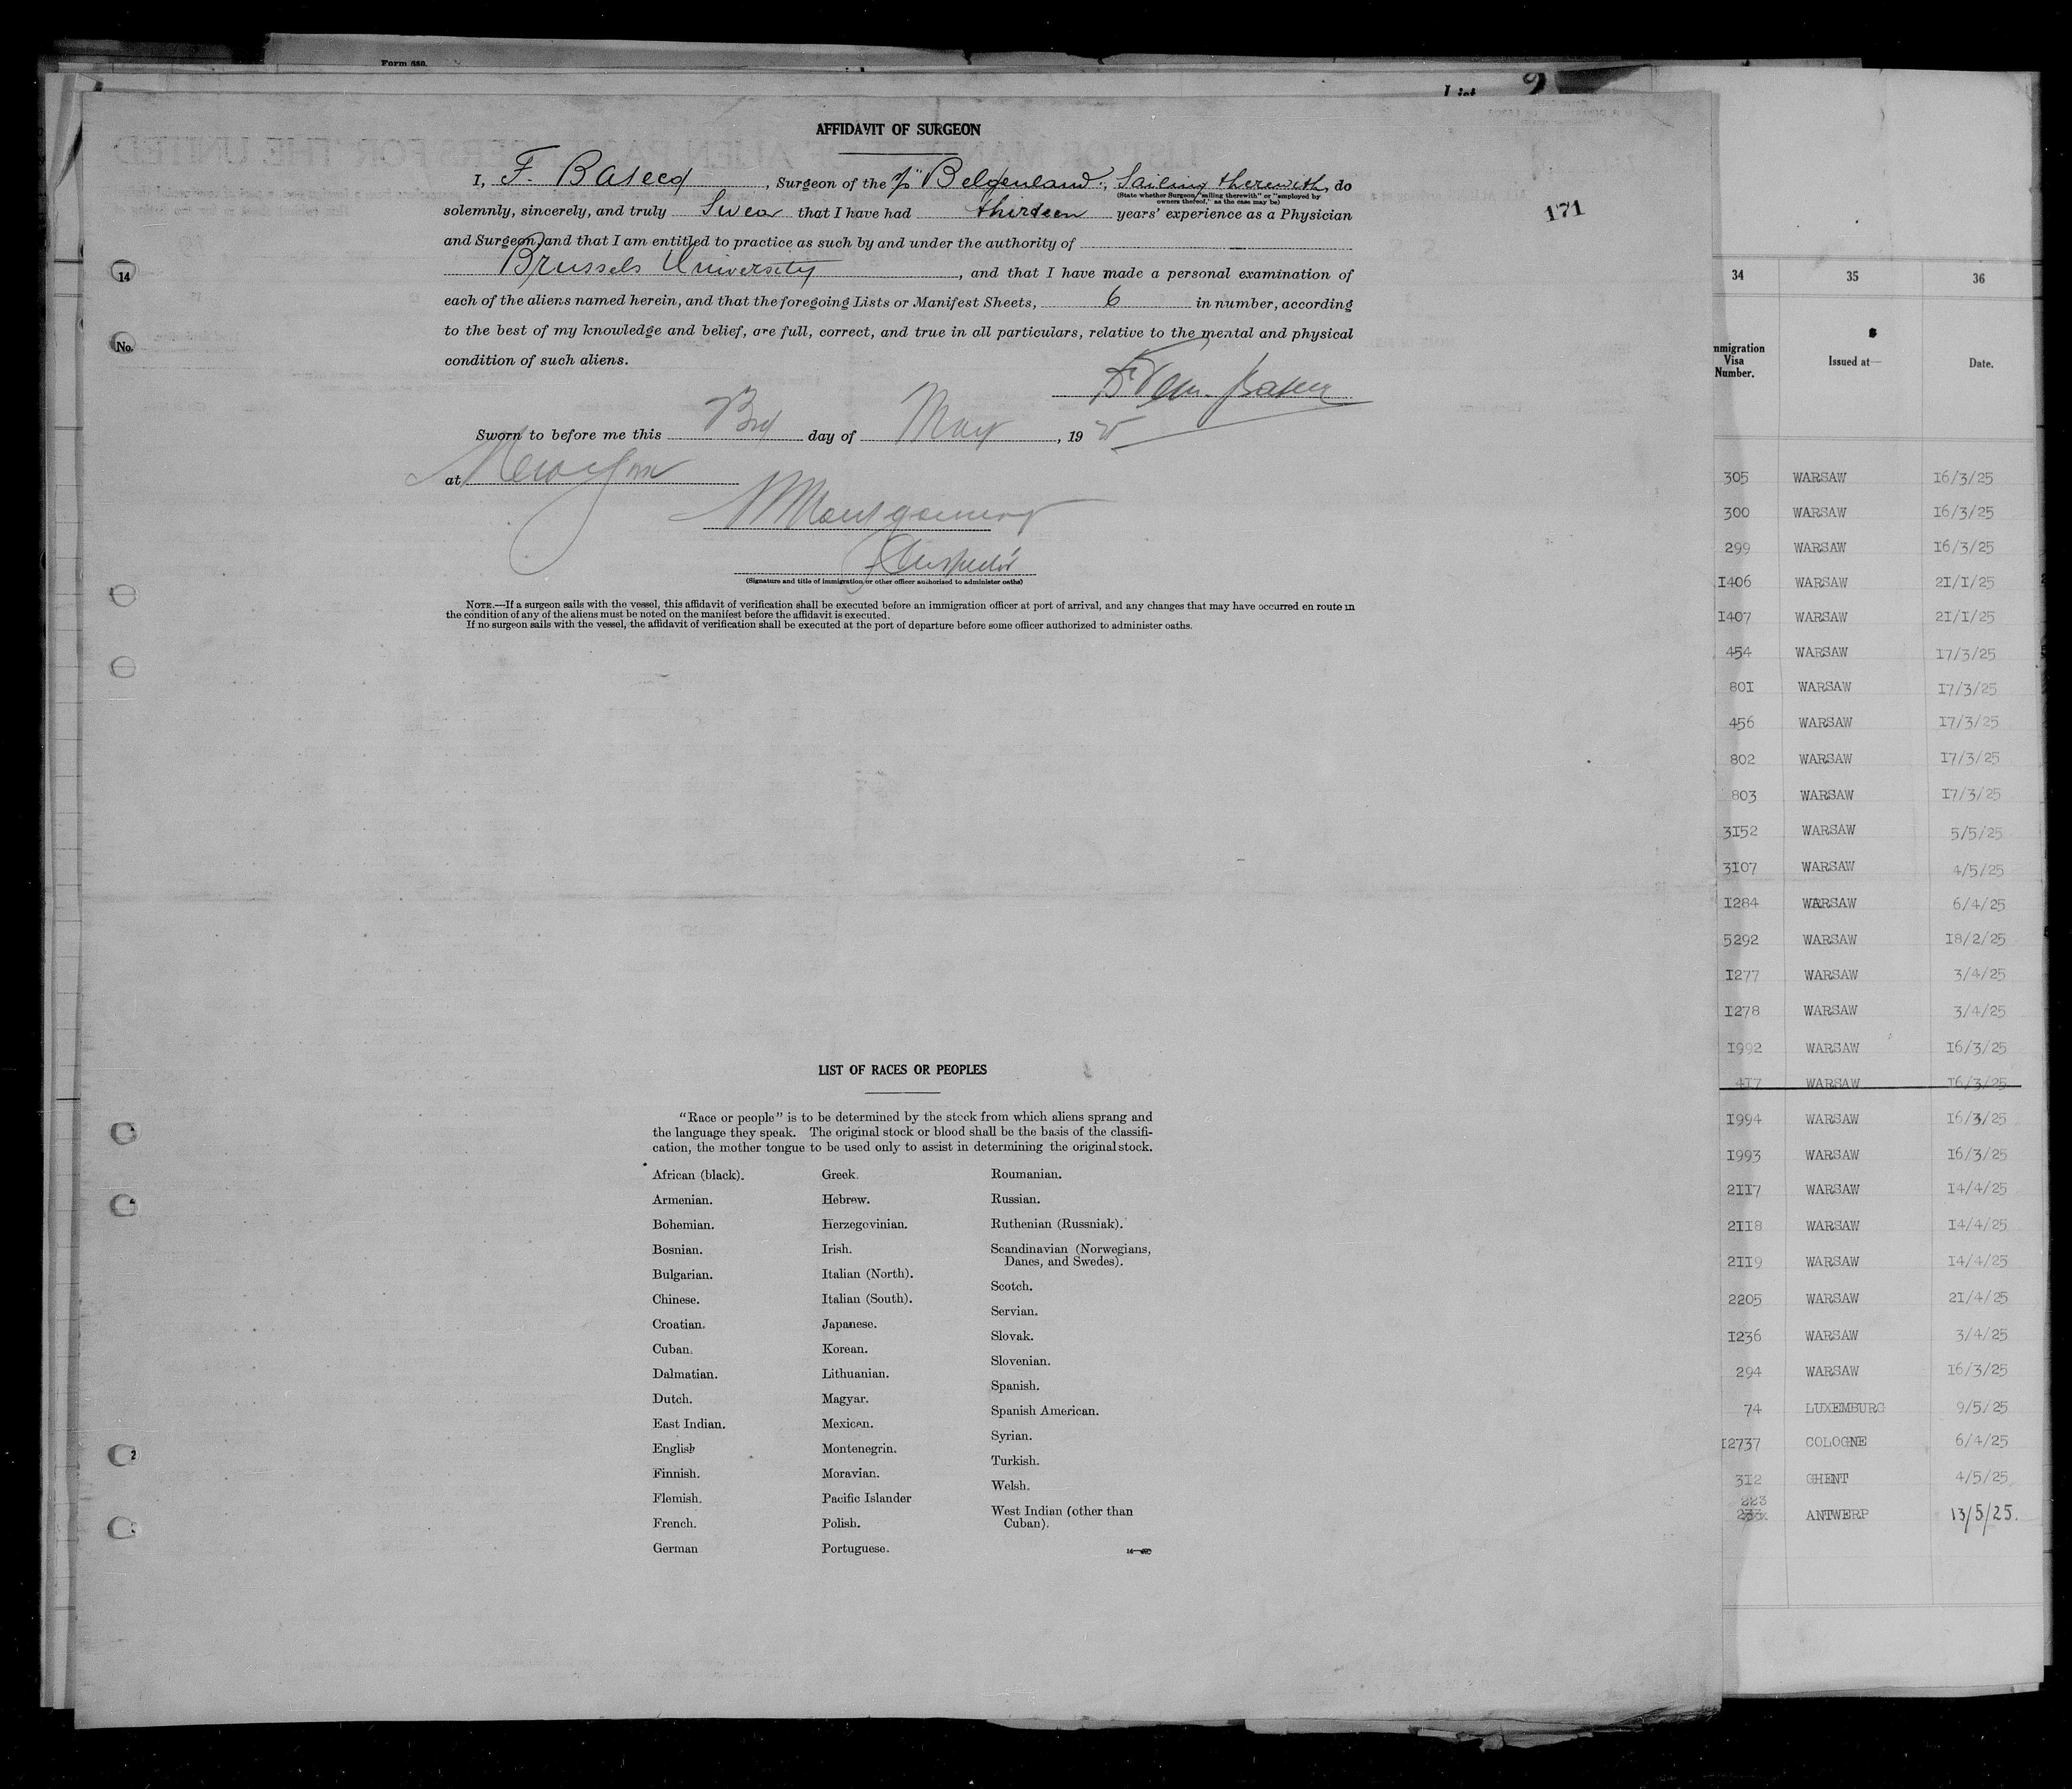 Form 680.
List 2
AFFIDAVIT OF SURGEON
171
I, F. Baseed, Surgeon of the S/S "Belgenland", Sailing therewith, do
(State whether Surgeon "sailing therewith" or "employed by
owners thereof," as the case may be)
solemnly, sincerely, and truly Swear that I have had thirteen years' experience as a Physician
and Surgeon, and that I am entitled to practice as such by and under the authority of
Brussels University, and that I have made a personal examination of
each of the aliens named herein, and that the foregoing Lists or Manifest Sheets, 6 in number, according
to the best of my knowledge and belief, are full, correct, and true in all particulars, relative to the mental and physical
condition of such aliens.
Sworn to before me this day of May, 19 25
at New York
Montgomery
Inspector
(Signature and title of immigration or other officer authorized to administer oaths)
NOTE.—If a surgeon sails with the vessel, this affidavit of verification shall be executed before an immigration officer at port of arrival, and any changes that may have occurred en route in
the condition of any of the aliens must be noted on the manifest before the affidavit is executed.
If no surgeon sails with the vessel, the affidavit of verification shall be executed at the port of departure before some officer authorized to administer oaths.
LIST OF RACES OR PEOPLES
"Race or people" is to be determined by the stock from which aliens sprang and
the language they speak. The original stock or blood shall be the basis of the classifi-
cation, the mother tongue to be used only to assist in determining the original stock.
African (black).
Armenian.
Bohemian.
Bosnian.
Bulgarian.
Chinese.
Croatian.
Cuban.
Dalmatian.
Dutch.
East Indian.
English
Finnish.
Flemish.
French.
German
Greek.
Hebrew.
Herzegovinian.
Irish.
Italian (North).
Italian (South).
Japanese.
Korean.
Lithuanian.
Magyar.
Mexican.
Montenegrin.
Moravian.
Pacific Islander
Polish.
Portuguese.
Roumanian.
Russian.
Ruthenian (Russniak).
Scandinavian (Norwegians,
Danes, and Swedes).
Scotch.
Servian.
Slovak.
Slovenian.
Spanish.
Spanish American.
Syrian.
Turkish.
Welsh.
West Indian (other than
Cuban).
14
No.
2
34 35 36
mmigration
Visa
Number.
Issued at—
Date.
305 WARSAW 16/3/25
300 WARSAW 16/3/25
299 WARSAW 16/3/25
1406 WARSAW 21/1/25
1407 WARSAW 21/1/25
454 WARSAW 17/3/25
801 WARSAW 17/3/25
456 WARSAW 17/3/25
802 WARSAW 17/3/25
803 WARSAW 17/3/25
3152 WARSAW 5/5/25
3107 WARSAW 4/5/25
1284 WARSAW 6/4/25
5292 WARSAW 18/2/25
1277 WARSAW 3/4/25
1278 WARSAW 3/4/25
1992 WARSAW 16/3/25
417 WARSAW 16/3/25
1994 WARSAW 16/3/25
1993 WARSAW 16/3/25
2117 WARSAW 14/4/25
2118 WARSAW 14/4/25
2119 WARSAW 14/4/25
2205 WARSAW 21/4/25
1236 WARSAW 3/4/25
294 WARSAW 16/3/25
74 LUXEMBURG 9/5/25
12737 COLOGNE 6/4/25
312 GHENT 4/5/25
223
ANTWERP 13/5/25.